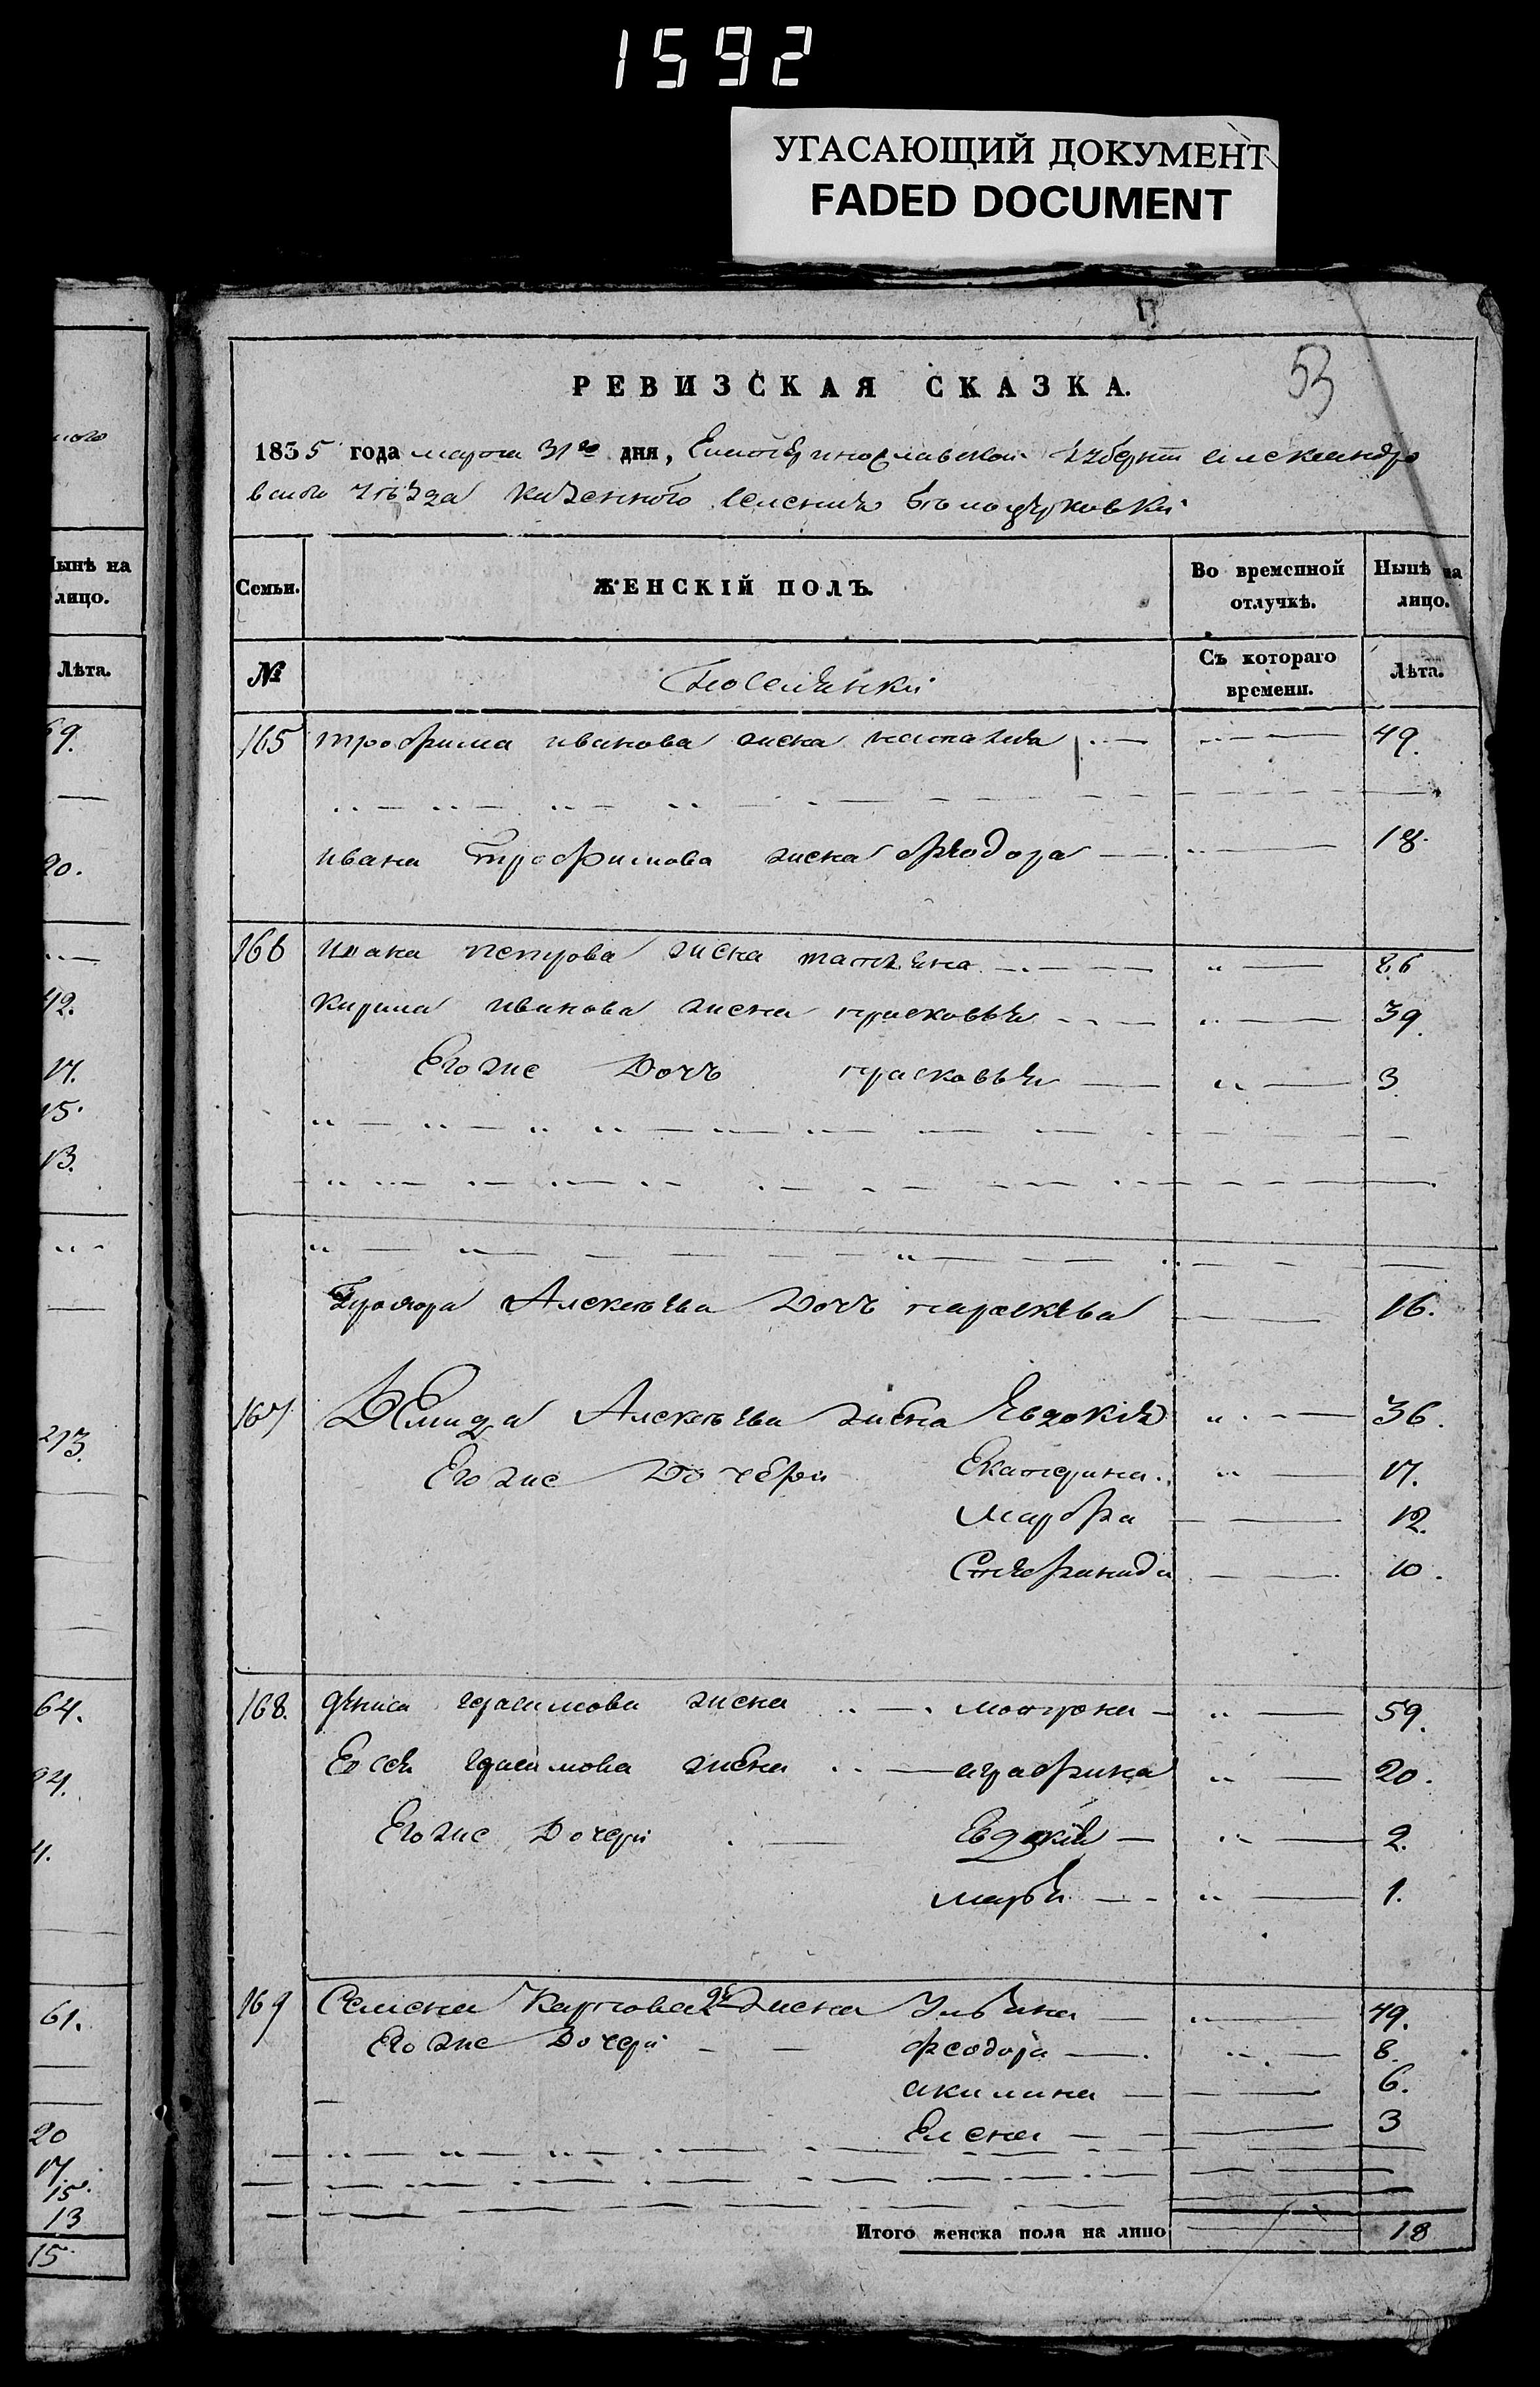 1592
УГАСАЮЩИЙ ДОКУМЕНТ
FADED DOCUMENT
53
РЕВИЗСКАЯ СКАЗКА.
1835 года марта 31го дня, Екатеринославской Губерніи александро
вскаго уѣзда казенного селенія Бѣлоцерковки
Семьи.
ЖЕНСКІЙ ПОЛЪ.
Во временной отлучкѣ.
Нынѣ на лицо.
№
Поселянки
Съ котораго времени.
Лѣта.
165 трофима иванова жена наталия 49.
ивана трофимова жена феодора 18.
166 ивана петрова жена татьяна 86
кирила иванова жена прасковья 39.
Егоже Дочь прасковья 3
Алексѣева Дочь параскева 16.
167 Демида Алексѣева жена Евдокия 36.
Егоже дочери Екатерина 17.
Марфа 12.
Степанида 10.
168. дениса герасимова жена мотрона 59.
герасимова жена аграфина 20.
Егоже Дочери Евдокия 2.
марья 1.
169 Семена Карпова 2я жена Ульяна 49.
Егоже Дочери феодора 8.
акилина 6.
Елена 3
Итого женска пола на лицо 18
ынѣ на
лицо.
Лѣта.
69.
20.
42.
17.
15.
13.
64.
4.
61.
20
17.
15.
13
15